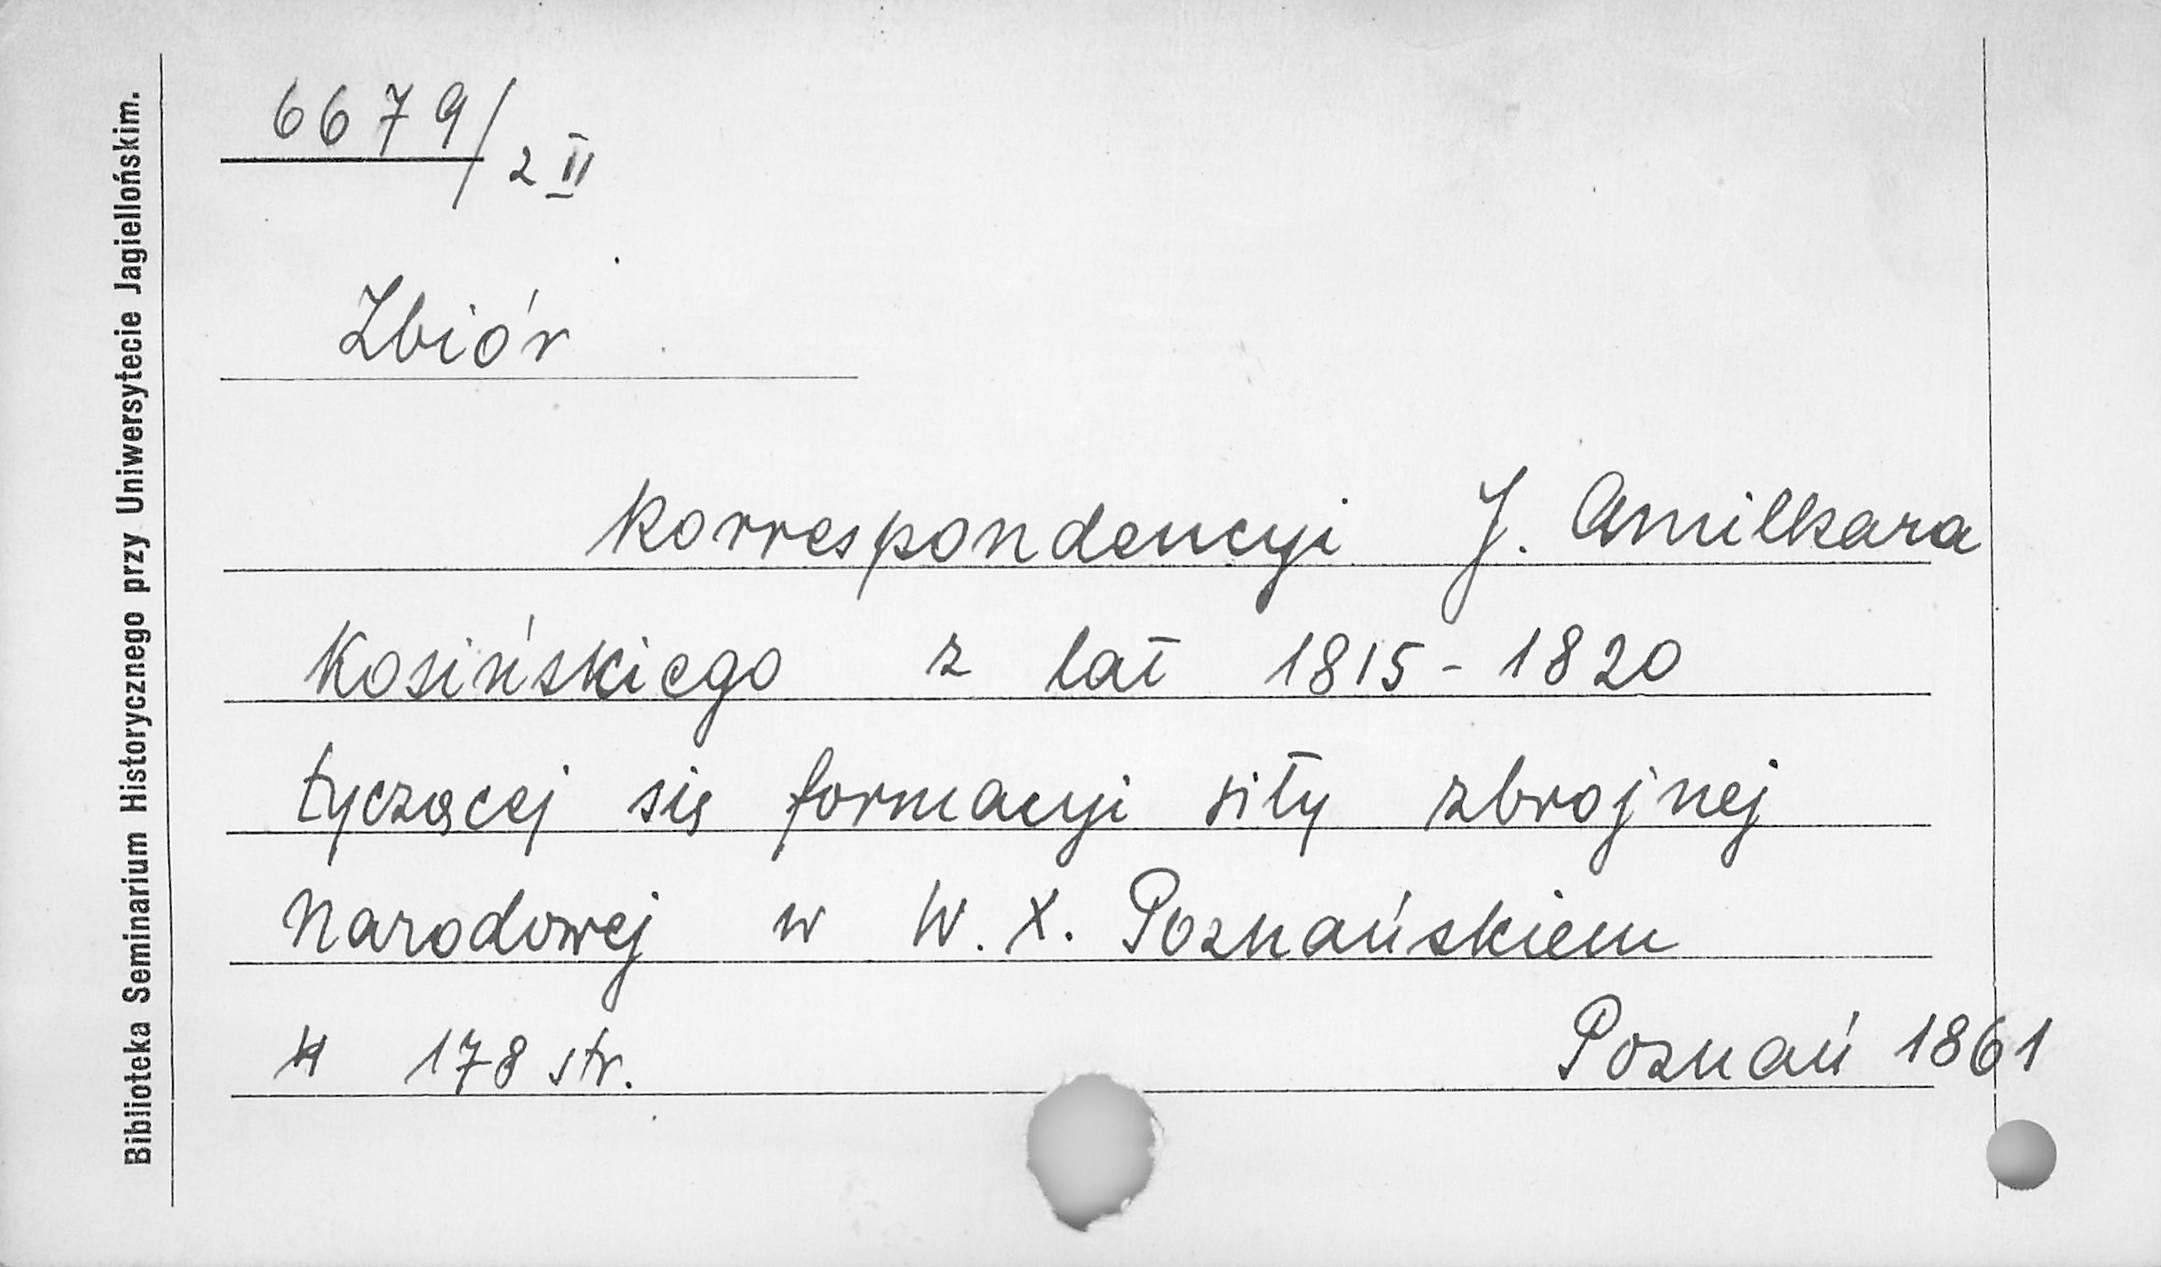 Biblioteka Seminarium Historycznego przy Uniwersytecie Jagiellońskim.
6679/2 II
Zbiór
korrespondencyi J. Amilkara
Kosińskiego z lat 1815-1820
tyczącej się formacyi siły zbrojnej
narodowej w W. X. Poznańskiem
178 str. Poznań 1861